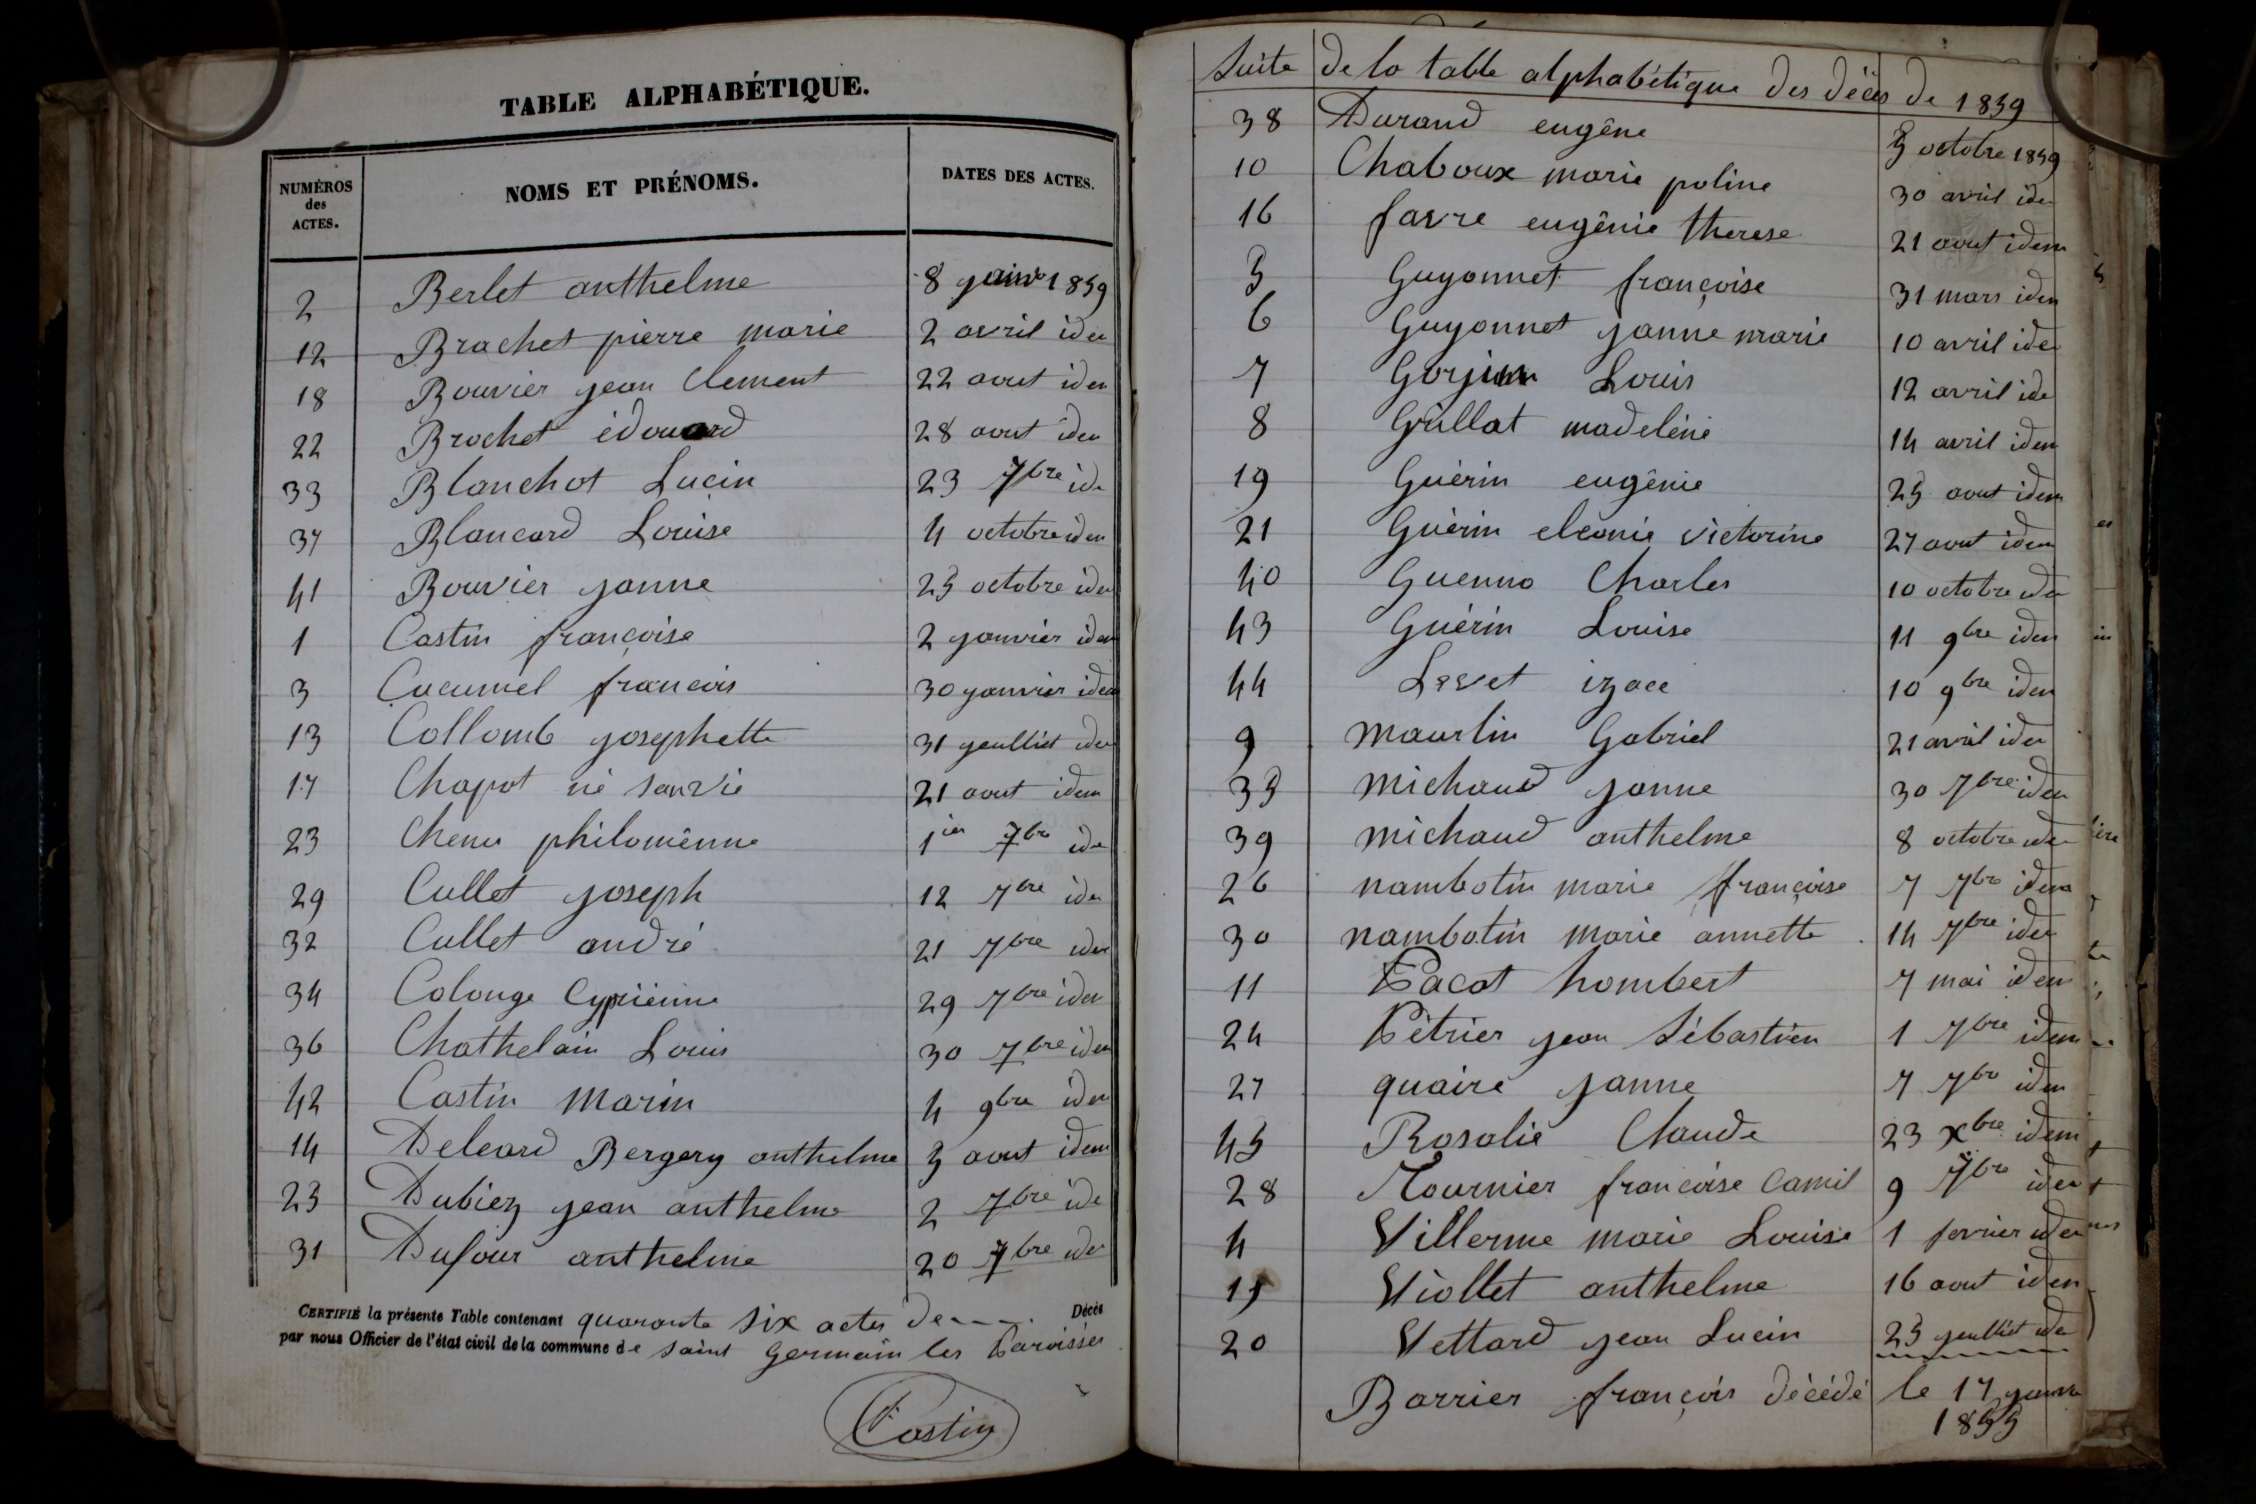 TABLE ALPHABÉTIQUE.
NUMÉROS des ACTES. NOMS ET PRÉNOMS. DATES DES ACTES.
2 Berlet anthelme 8 1859
12 Brachet pierre marie 2 avril iden
18 Bouvier jean Clement 22 aout iden
22 Brochet édouard 28 aout iden
33 Blanchot Lucin 23 7bre ide
37 Blancard Louise 4 octobre iden
41 Bouvier janne 25 octobre iden
1 Castin françoise 2 janvier iden
3 Cucumel francois 30 janvier iden
13 Collomb josephette 31 jeulliet iden
17 Chapot né sanvie 21 aout idem
23 Chenu philomênne 1ier 7bre ide
29 Cullet joseph 12 7bre iden
32 Cullet andré 21 7bre iden
34 Colonge Cypriênne 29 7bre iden
36 Chathelain Louis 30 7bre iden
42 Castin Marin 4 9bre iden
14 Deleard Bergery anthelme 5 aout idem
25 Dubiez jean anthelme 2 7bre ide
31 Dufour anthelme 20 7bre ide
CERTIFIÉ la présente Table contenant quarante six actes de Décès
par nous Officier de l'état civil de la commune de saint Germain les Paroisses
Castin
Suite de la table alphabétique des décès de 1859
38 Durand eugêne 5 octobre 1859
10 Chaboux marie poline 30 avril iden
16 favre eugênie therese 21 aout idem
5 Guyonnet françoise 31 mars iden
6 Guyonnet janne marie 10 avril iden
7 Louis 12 avril ide
8 Grillat madeléne 14 avril idem
19 Guérin eugênie 25 aout idem
21 Guérin eleonie victorine 27 aout idem
40 Guenno Charles 10 octobre iden
43 Guérin Louise 11 9bre iden
44 Levet izace 10 9bre iden
9 Maurlin Gabriel 21 avril iden
35 Michaud janne 30 7bre iden
39 Michaud anthelme 8 octobre iden
26 nambotin marie françoise 7 7bre idem
30 nambotin marie annette 14 7bre iden
11 Pacot hombert 7 mai idem
24 Pétrier jean Sébastien 1 7bre idem
27 quaire janne 7 7bre iden
45 Rosalie Claude 23 xbre idem
28 Tournier francoise Camil 9 7bre iden
4 Villerme marie Louise 1 fevrier iden
15 Viollet anthelme 16 aout iden
20 Vettard jean Lucin 25 jeulliet ide
Barrier françois décédé le 17
1855